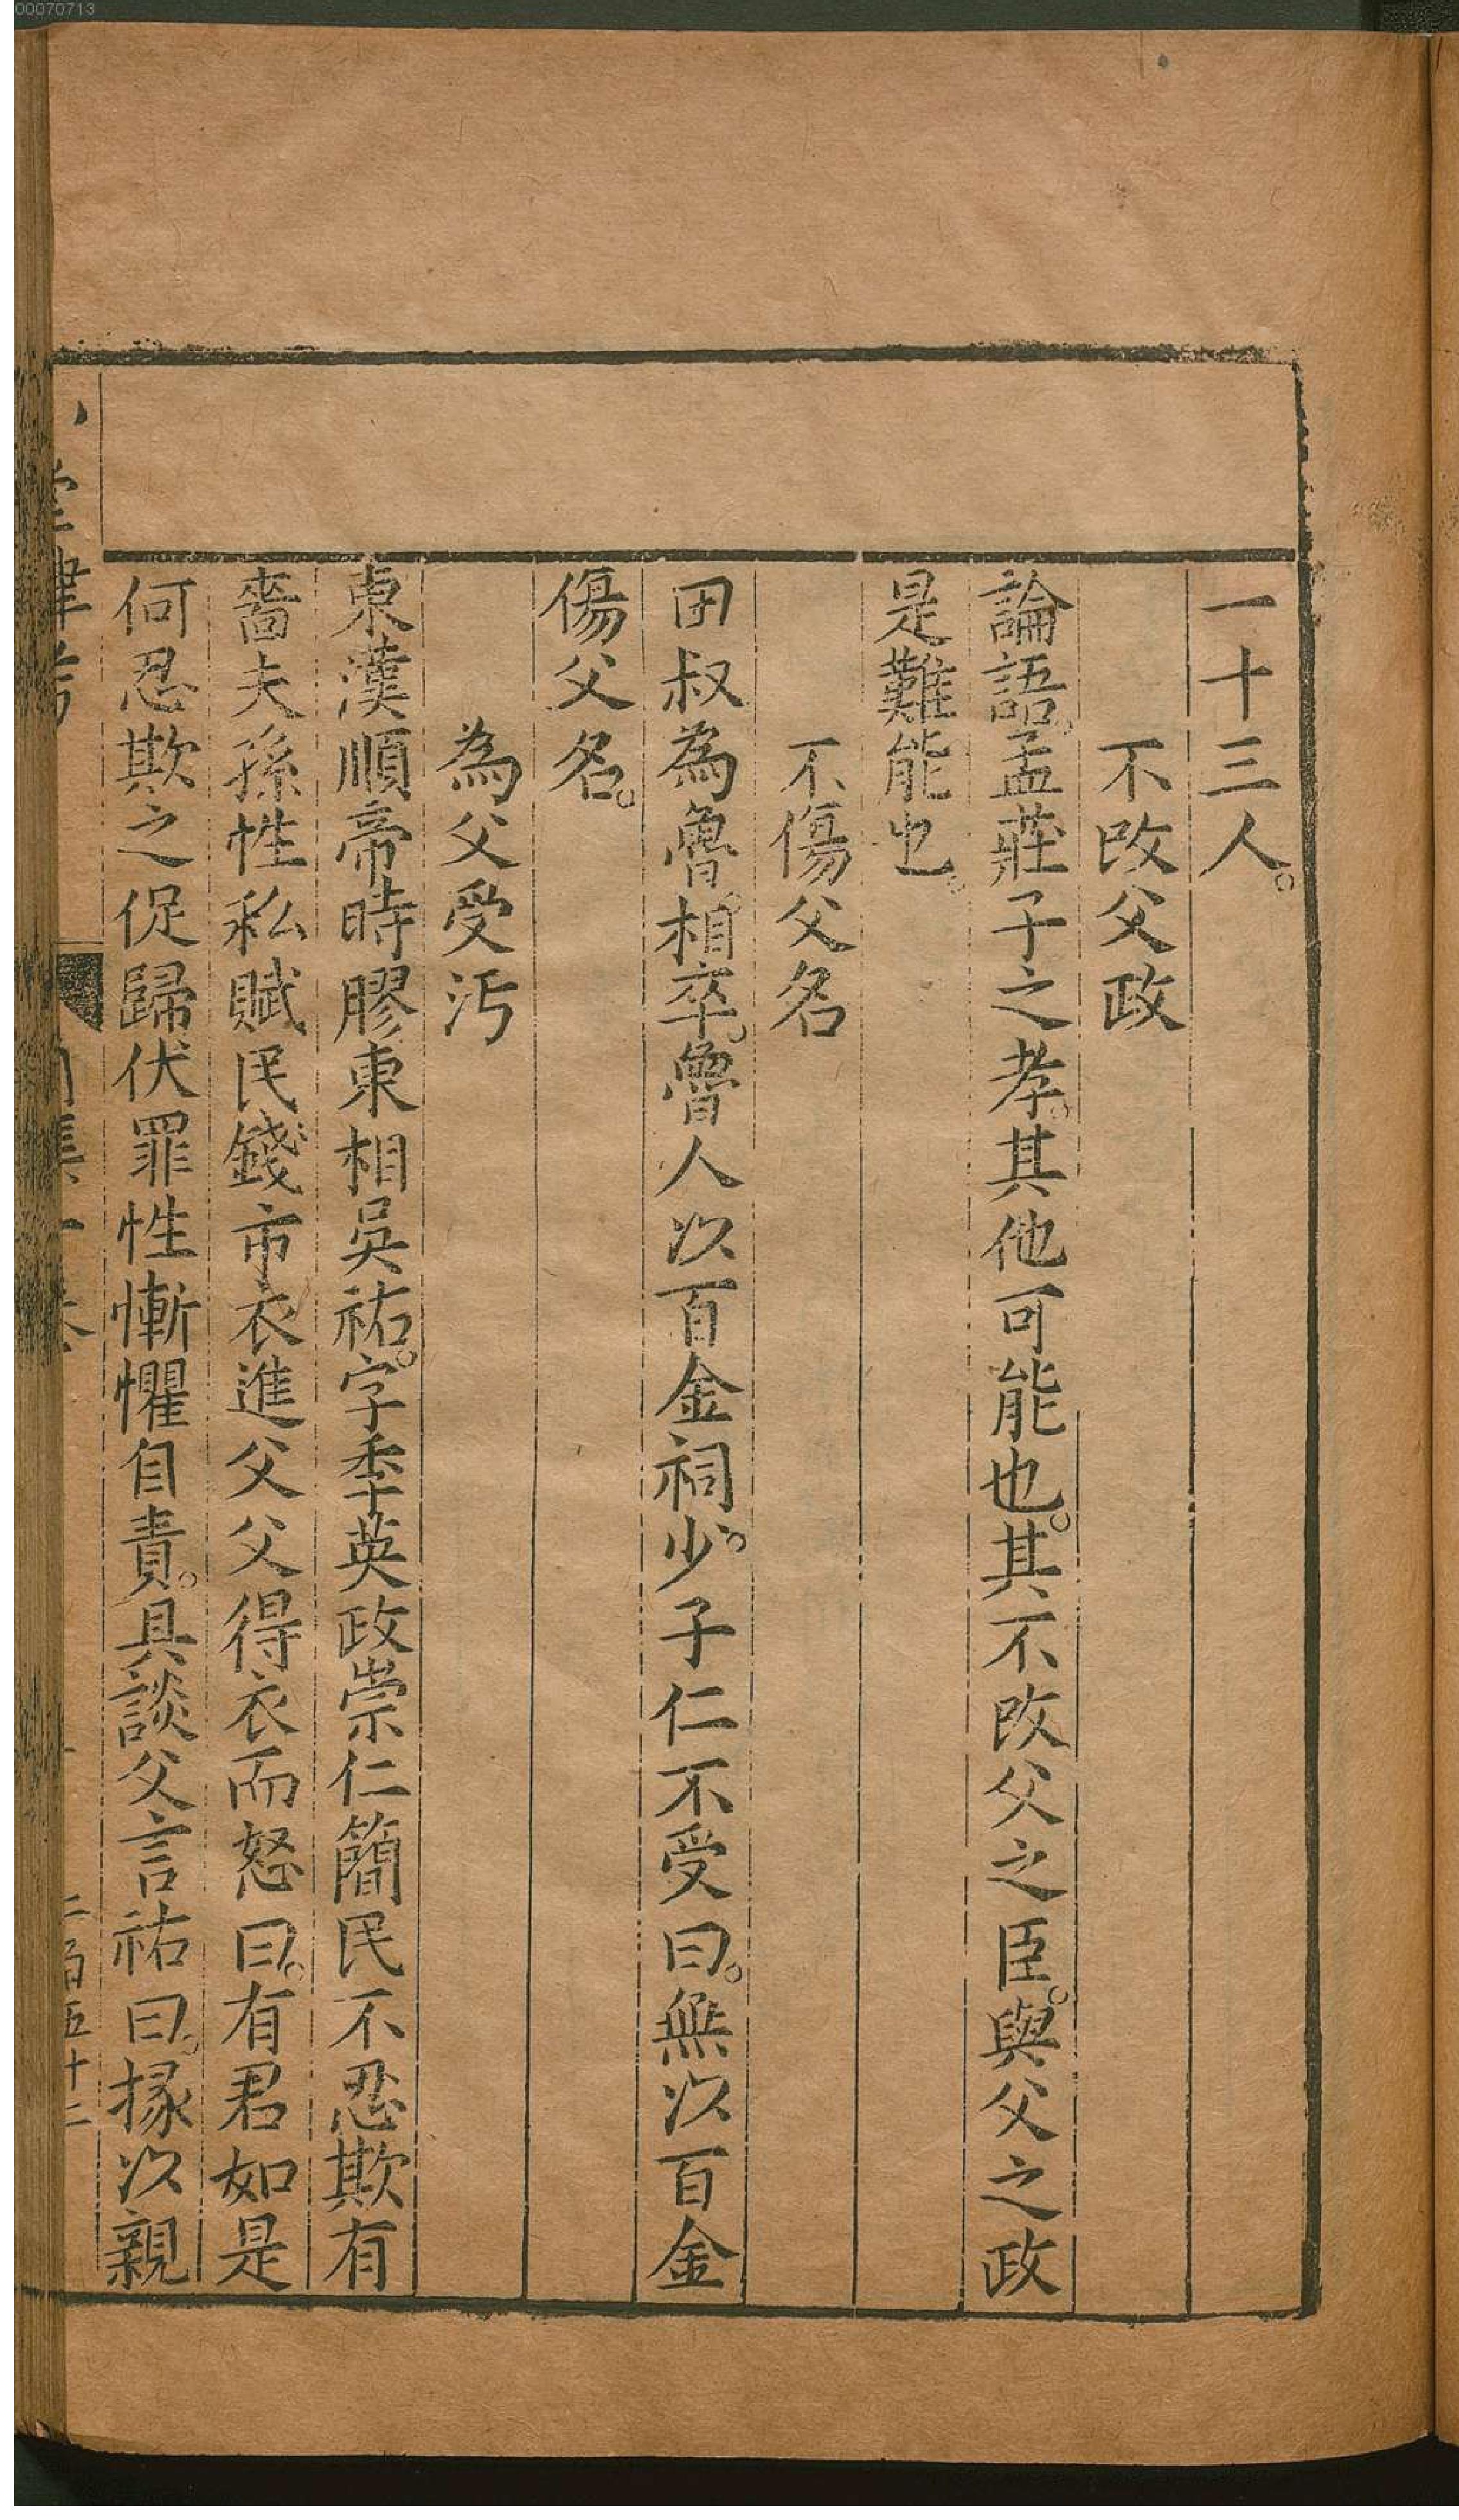 00070713
一十三人。
不改父政
論語。孟莊子之孝。其他可能也。其不改父之臣。與父之政
是難能也。
不傷父名
田叔為魯相卒。魯人以百金祠。少子仁不受曰。無以百金
傷父名。
為父受汚
東漢順帝時膠東相吳祐。字季英政崇仁簡民不忍欺有
嗇夫孫性私賦民錢市衣進父父得衣而怒曰。有君如是
何忍欺之促歸伏罪性慚懼自責。具談父言祐曰。掾以親
二百五十二